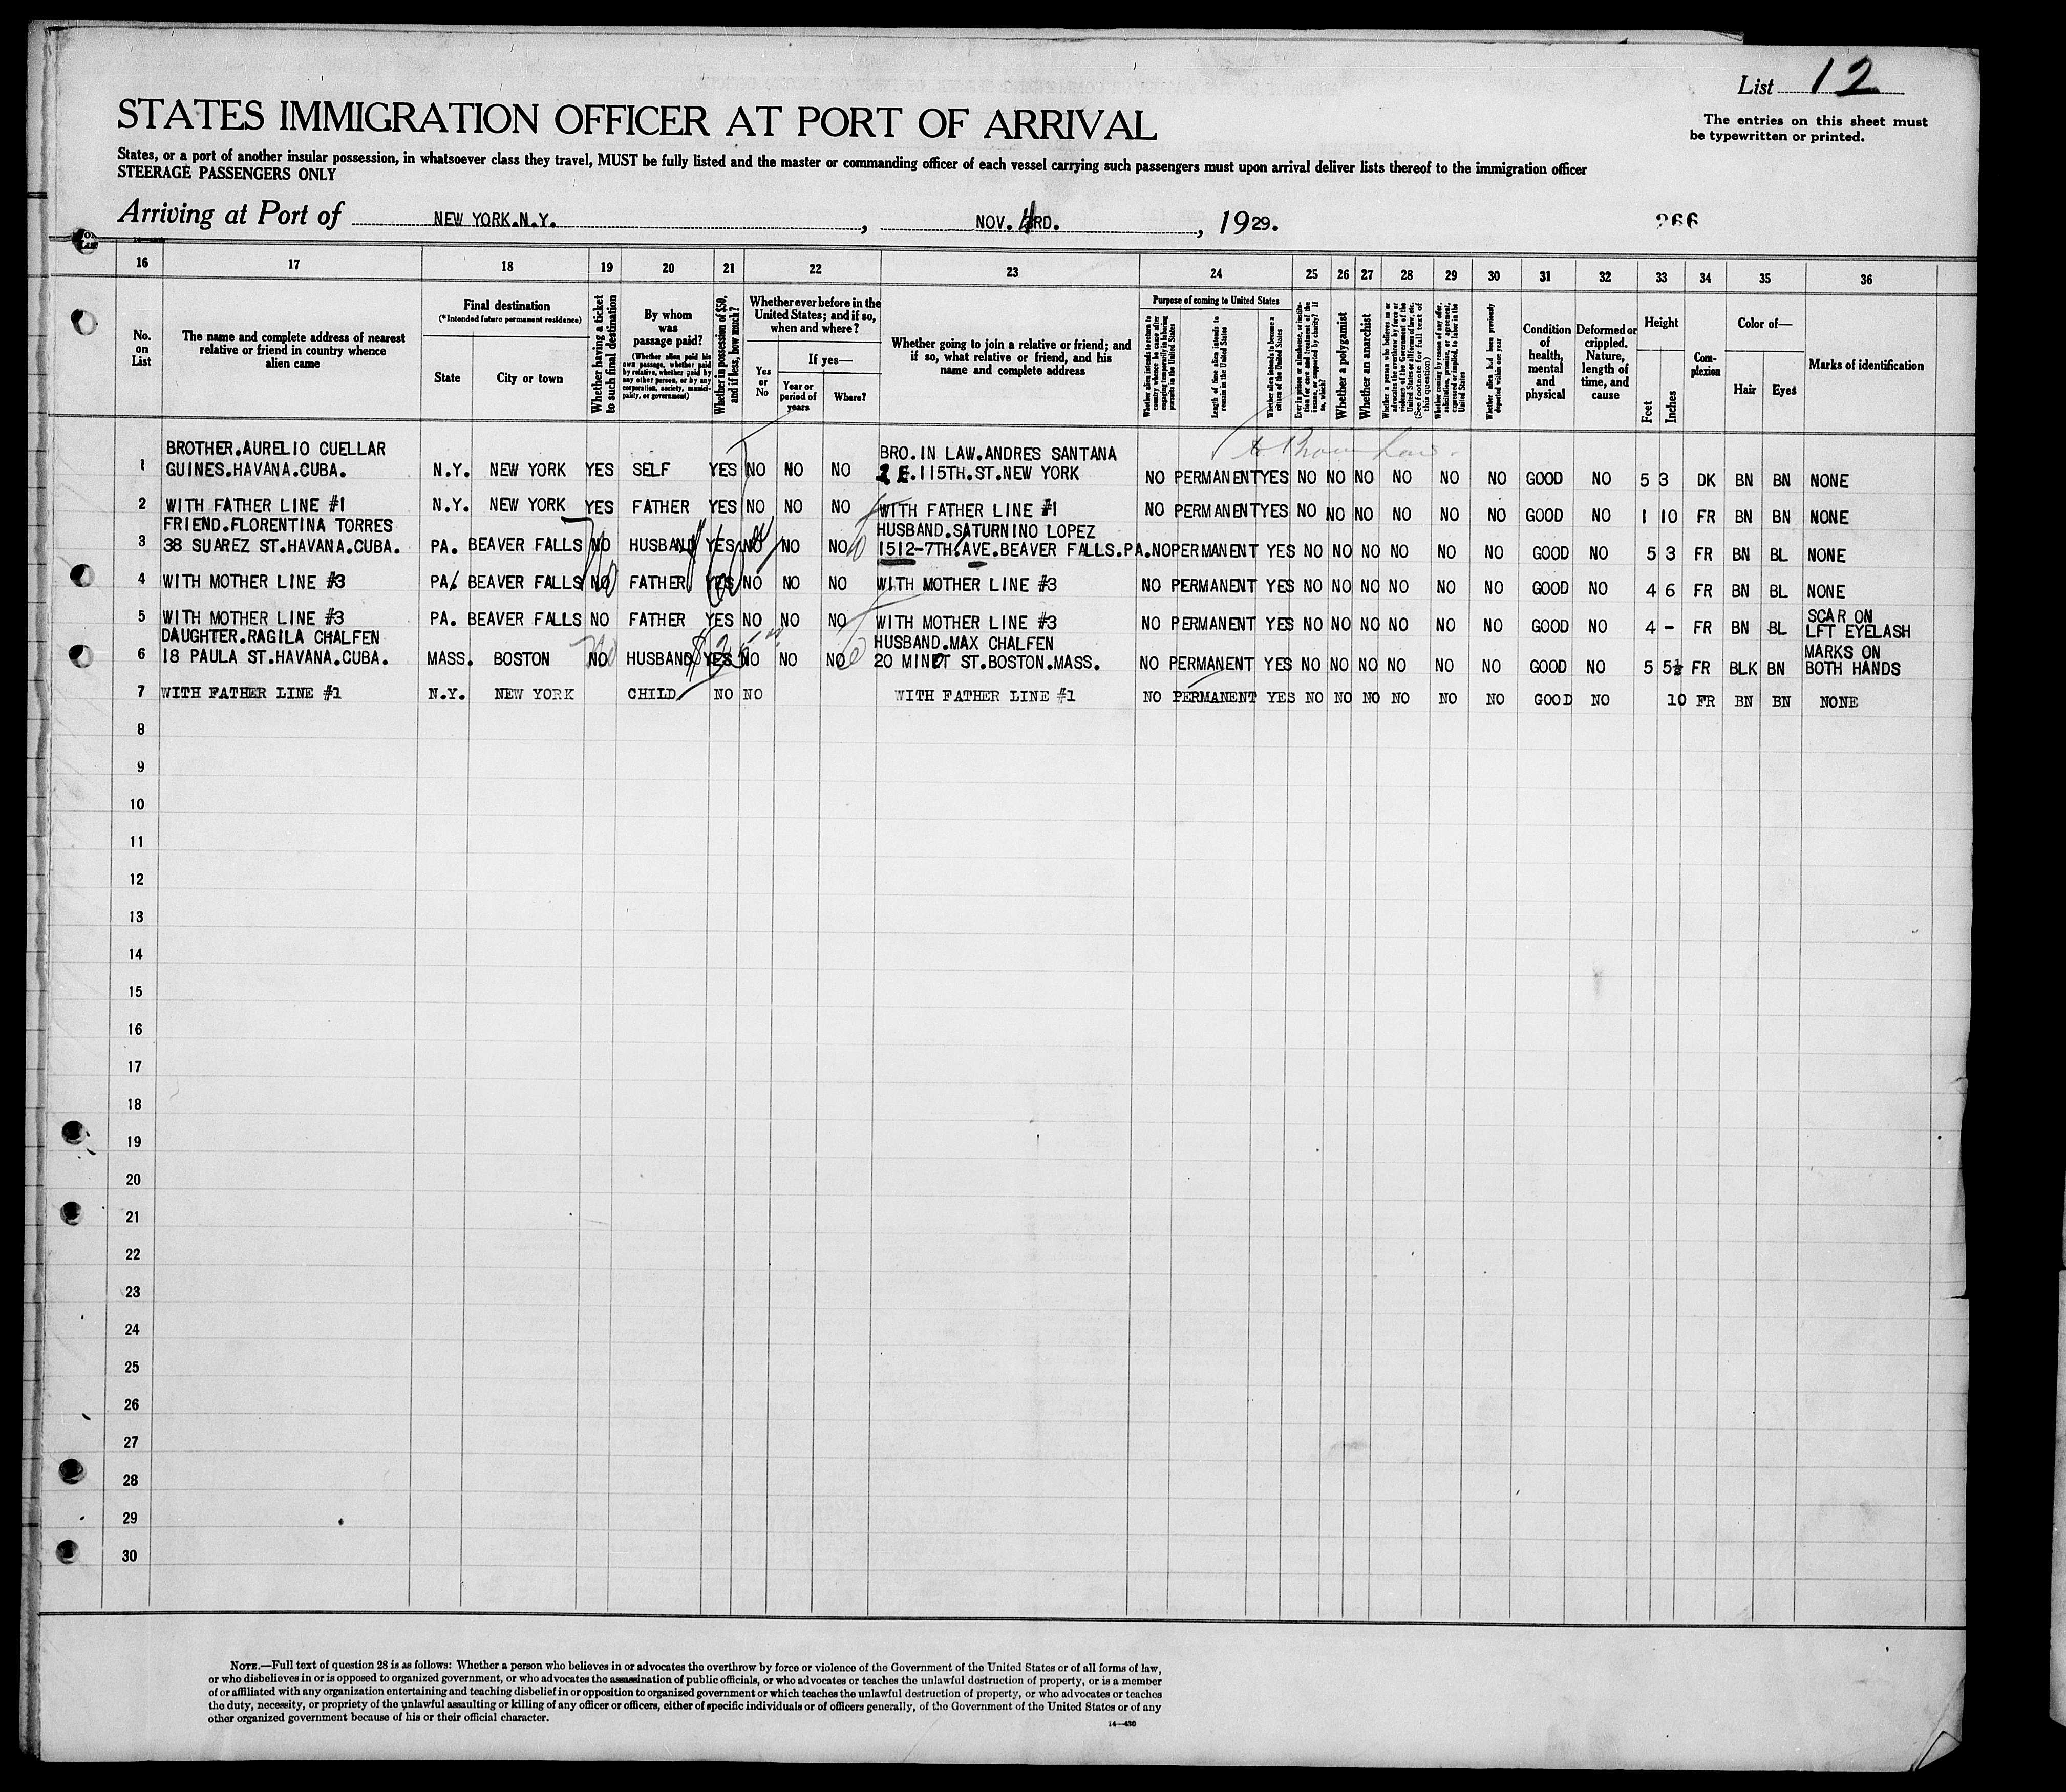 List 12
The entries on this sheet must
be typewritten or printed.
STATES IMMIGRATION OFFICER AT PORT OF ARRIVAL
States, or a port of another insular possession, in whatsoever class they travel, MUST be fully listed and the master or commanding officer of each vessel carrying such passengers must upon arrival deliver lists thereof to the immigration officer
STEERAGE PASSENGERS ONLY
Arriving at Port of NEW YORK.N.Y. , NOV. RD. , 1929.
266
16 17 18 19 20 21 22 23 24 25 26 27 28 29 30 31 32 33 34 35 36
No.
on
List
The name and complete address of nearest
relative or friend in country whence
alien came
Final destination
(*Intended future permanent residence)
State
City or town
Whether having a ticket
to such final destination
By whom
was
passage paid?
(Whether alien paid his
own passage, whether paid
by relative, whether paid by
any other person, or by any
corporation, society, munici-
pality, or government)
Whether in possession of $50,
and if less, how much?
Whether ever before in the
United States; and if so,
when and where?
Yes
or
No
If yes—
Year or
period of
years
Where?
Whether going to join a relative or friend; and
if so, what relative or friend, and his
name and complete address
Purpose of coming to United States
Whether alien intends to return to
country whence he came after
engaging temporarily in laboring
pursuits in the United States
Length of time alien intends to
remain in the United States
Whether alien intends to become a
citizen of the United States
Ever in prison or almshouse, or institu-
tion for care and treatment of the
insane, or supported by charity? If
so, which?
Whether a polygamist
Whether an anarchist
Whether a person who believes in or
advocates the overthrow by force or
violence of the Government of the
United States or all forms of law, etc.
(See footnote for full text of
this question)
Whether coming by reason of any offer,
solicitation, promise, or agreement,
expressed or implied, to labor in the
United States
Whether alien had been previously
deported within one year
Condition
of
health,
mental
and
physical
Deformed or
crippled.
Nature,
length of
time, and
cause
Height
Feet
Inches
Com-
plexion
Color of—
Hair
Eyes
Marks of identification
BROTHER.AURELIO CUELLAR BRO. IN LAW.ANDRES SANTANA
1 GUINES.HAVANA.CUBA. N.Y. NEW YORK YES SELF YES NO NO NO 2 E.115TH.ST.NEW YORK NO PERMANENT YES NO NO NO NO NO NO GOOD NO 5 3 DK BN BN NONE
2 WITH FATHER LINE #1 N.Y. NEW YORK YES FATHER YES NO NO NO WITH FATHER LINE #1 NO PERMANENT YES NO NO NO NO NO NO GOOD NO 1 10 FR BN BN NONE
FRIEND.FLORENTINA TORRES HUSBAND.SATURNINO LOPEZ
3 38 SUAREZ ST.HAVANA.CUBA. PA. BEAVER FALLS NO HUSBAND YES NO NO NO 1512-7TH.AVE.BEAVER FALLS.PA. NO PERMANENT YES NO NO NO NO NO NO GOOD NO 5 3 FR BN BL NONE
4 WITH MOTHER LINE #3 PA. BEAVER FALLS NO FATHER YES NO NO NO WITH MOTHER LINE #3 NO PERMANENT YES NO NO NO NO NO NO GOOD NO 4 6 FR BN BL NONE
SCAR ON
5 WITH MOTHER LINE #3 PA. BEAVER FALLS NO FATHER YES NO NO NO WITH MOTHER LINE #3 NO PERMANENT YES NO NO NO NO NO NO GOOD NO 4 - FR BN BL LFT EYELASH
DAUGHTER.RAGILA CHALFEN HUSBAND.MAX CHALFEN MARKS ON
6 18 PAULA ST.HAVANA.CUBA. MASS. BOSTON NO HUSBAND YES NO NO NO 20 MINOT ST.BOSTON.MASS. NO PERMANENT YES NO NO NO NO NO NO GOOD NO 5 5½ FR BLK BN BOTH HANDS
7 WITH FATHER LINE #1 N.Y. NEW YORK CHILD NO NO WITH FATHER LINE #1 NO PERMANENT YES NO NO NO NO NO NO GOOD NO 10 FR BN BN NONE
8
9
10
11
12
13
14
15
16
17
18
19
20
21
22
23
24
25
26
27
28
29
30
NOTE.—Full text of question 28 is as follows: Whether a person who believes in or advocates the overthrow by force or violence of the Government of the United States or of all forms of law,
or who disbelieves in or is opposed to organized government, or who advocates the assassination of public officials, or who advocates or teaches the unlawful destruction of property, or is a member
of or affiliated with any organization entertaining and teaching disbelief in or opposition to organized government or which teaches the unlawful destruction of property, or who advocates or teaches
the duty, necessity, or propriety of the unlawful assaulting or killing of any officer or officers, either of specific individuals or of officers generally, of the Government of the United States or of any
other organized government because of his or their official character.
14—430